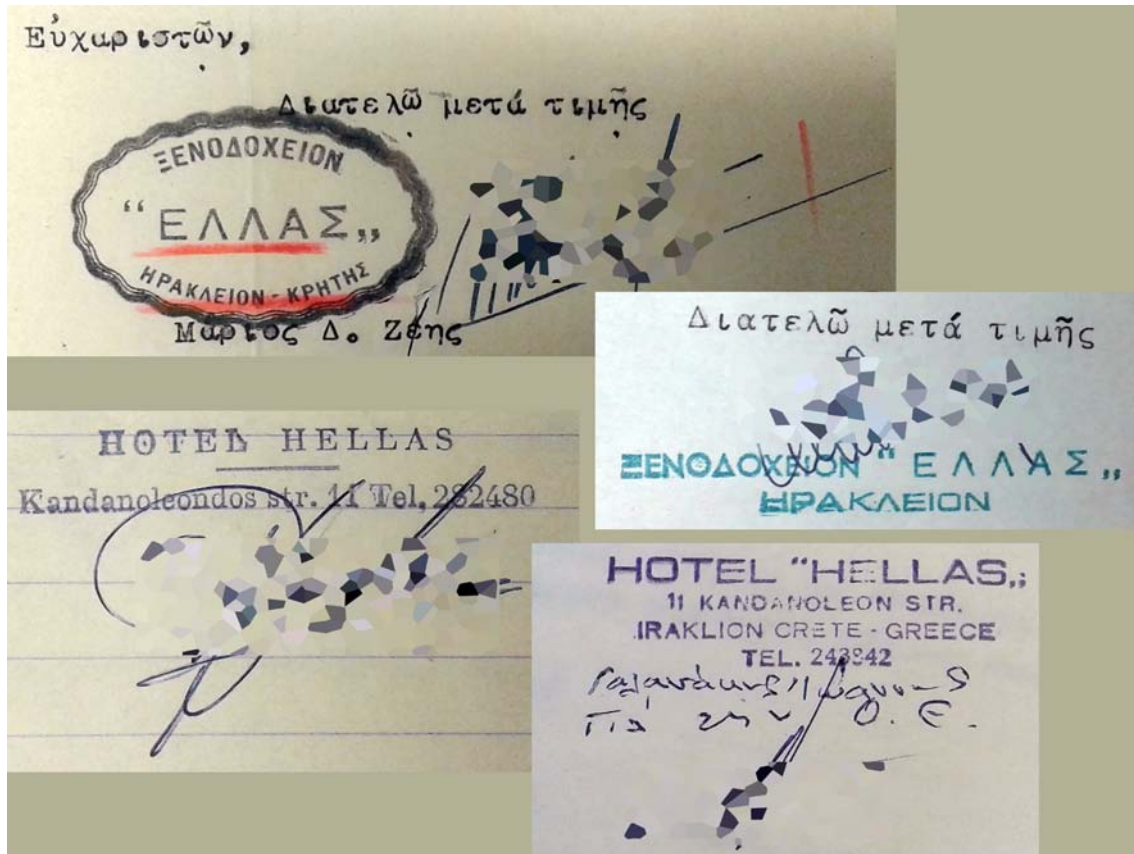 Εὐχαριστῶν,
Διατελῶ μετά τιμῆς
ΞΕΝΟΔΟΧΕΙΟΝ
“ΕΛΛΑΣ„
ΗΡΑΚΛΕΙΟΝ - ΚΡΗΤΗΣ
Μάριος Δ. Ζέης
Διατελῶ μετά τιμῆς
ΞΕΝΟΔΟΧΕΙΟΝ “ΕΛΛΑΣ„
ΗΡΑΚΛΕΙΟΝ
HOTEL HELLAS
Kandanoleondos str. 11 Tel, 282480
HOTEL “HELLAS„
11 KANDANOLEON STR.
IRAKLION CRETE - GREECE
TEL. 243842
Γαλανάκης Ιωάννης
Για την Ο.Ε.